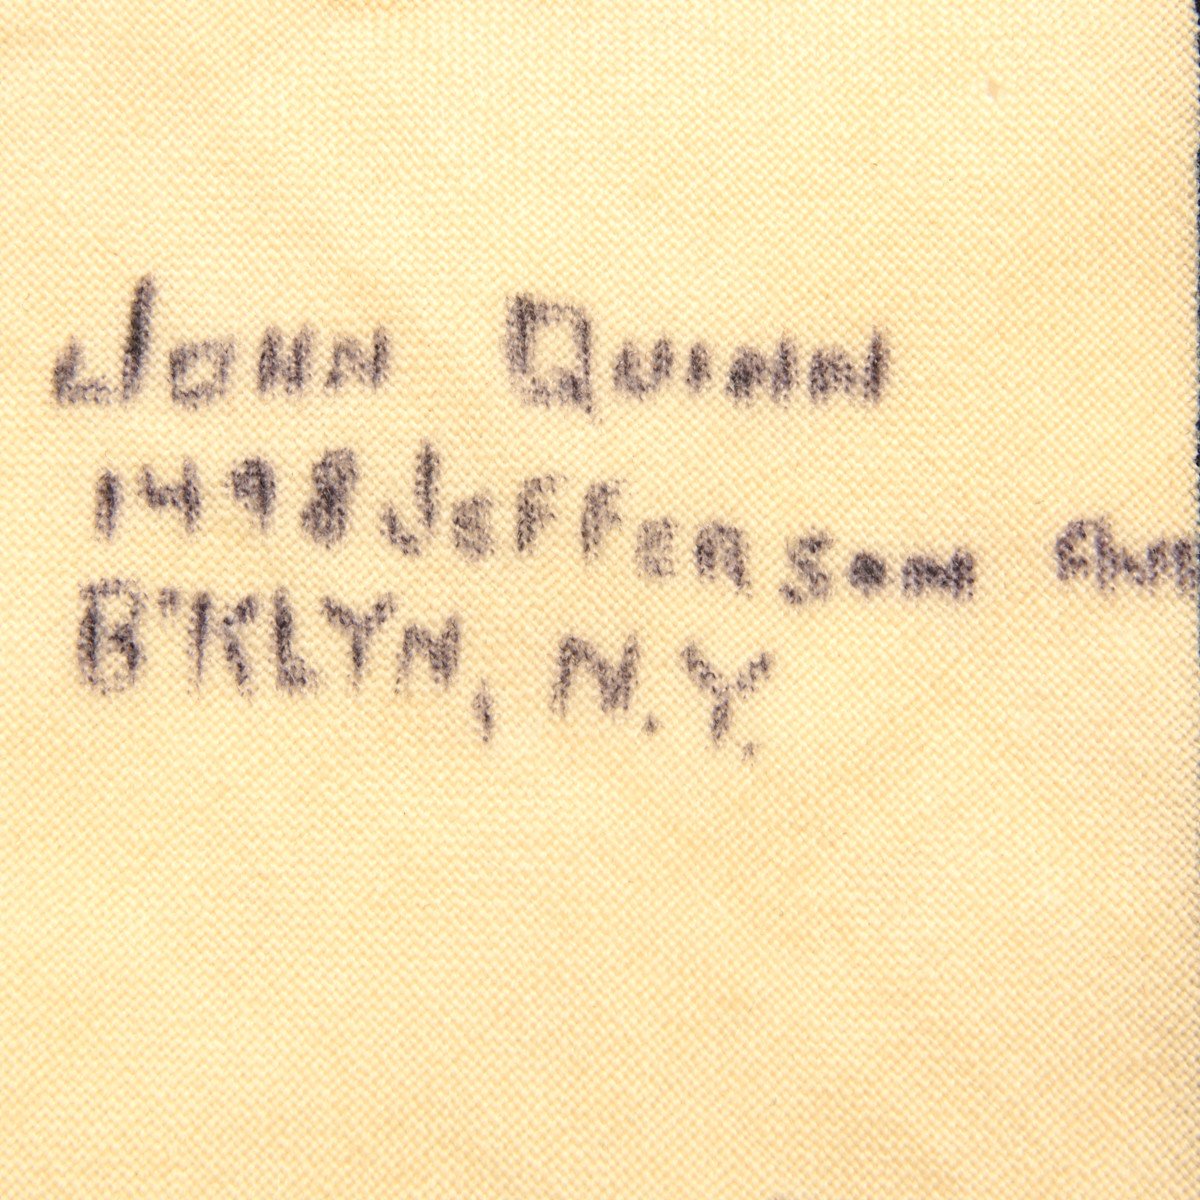 JOHN QUINN
1498 JEFFERSON
B'KLYN, N.Y.